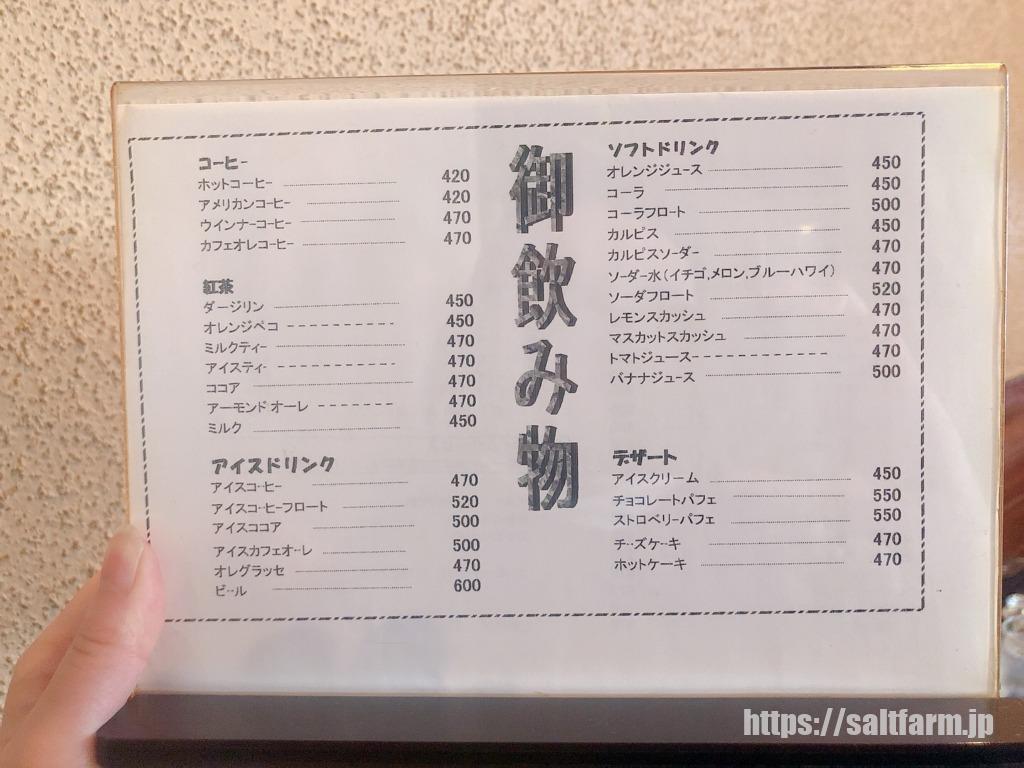 御飲み物
コーヒー
ホットコーヒー 420
アメリカンコーヒー 420
ウインナーコーヒー 470
カフェオレコーヒー 470
紅茶
ダージリン 450
オレンジペコ 450
ミルクティー 470
アイスティー 470
ココア 470
アーモンドオーレ 470
ミルク 450
アイスドリンク
アイスコーヒー 470
アイスコーヒーフロート 520
アイスココア 500
アイスカフェオーレ 500
オレグラッセ 470
ビール 600
ソフトドリンク
オレンジジュース 450
コーラ 450
コーラフロート 500
カルピス 450
カルピスソーダー 470
ソーダー水(イチゴ,メロン,ブルーハワイ) 470
ソーダフロート 520
レモンスカッシュ 470
マスカットスカッシュ 470
トマトジュース 470
バナナジュース 500
デザート
アイスクリーム 450
チョコレートパフェ 550
ストロベリーパフェ 550
チーズケーキ 470
ホットケーキ 470
https://saltfarm.jp